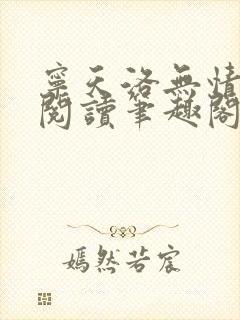 寧天洛無情
閱讀筆趣閣
嫣然若宸